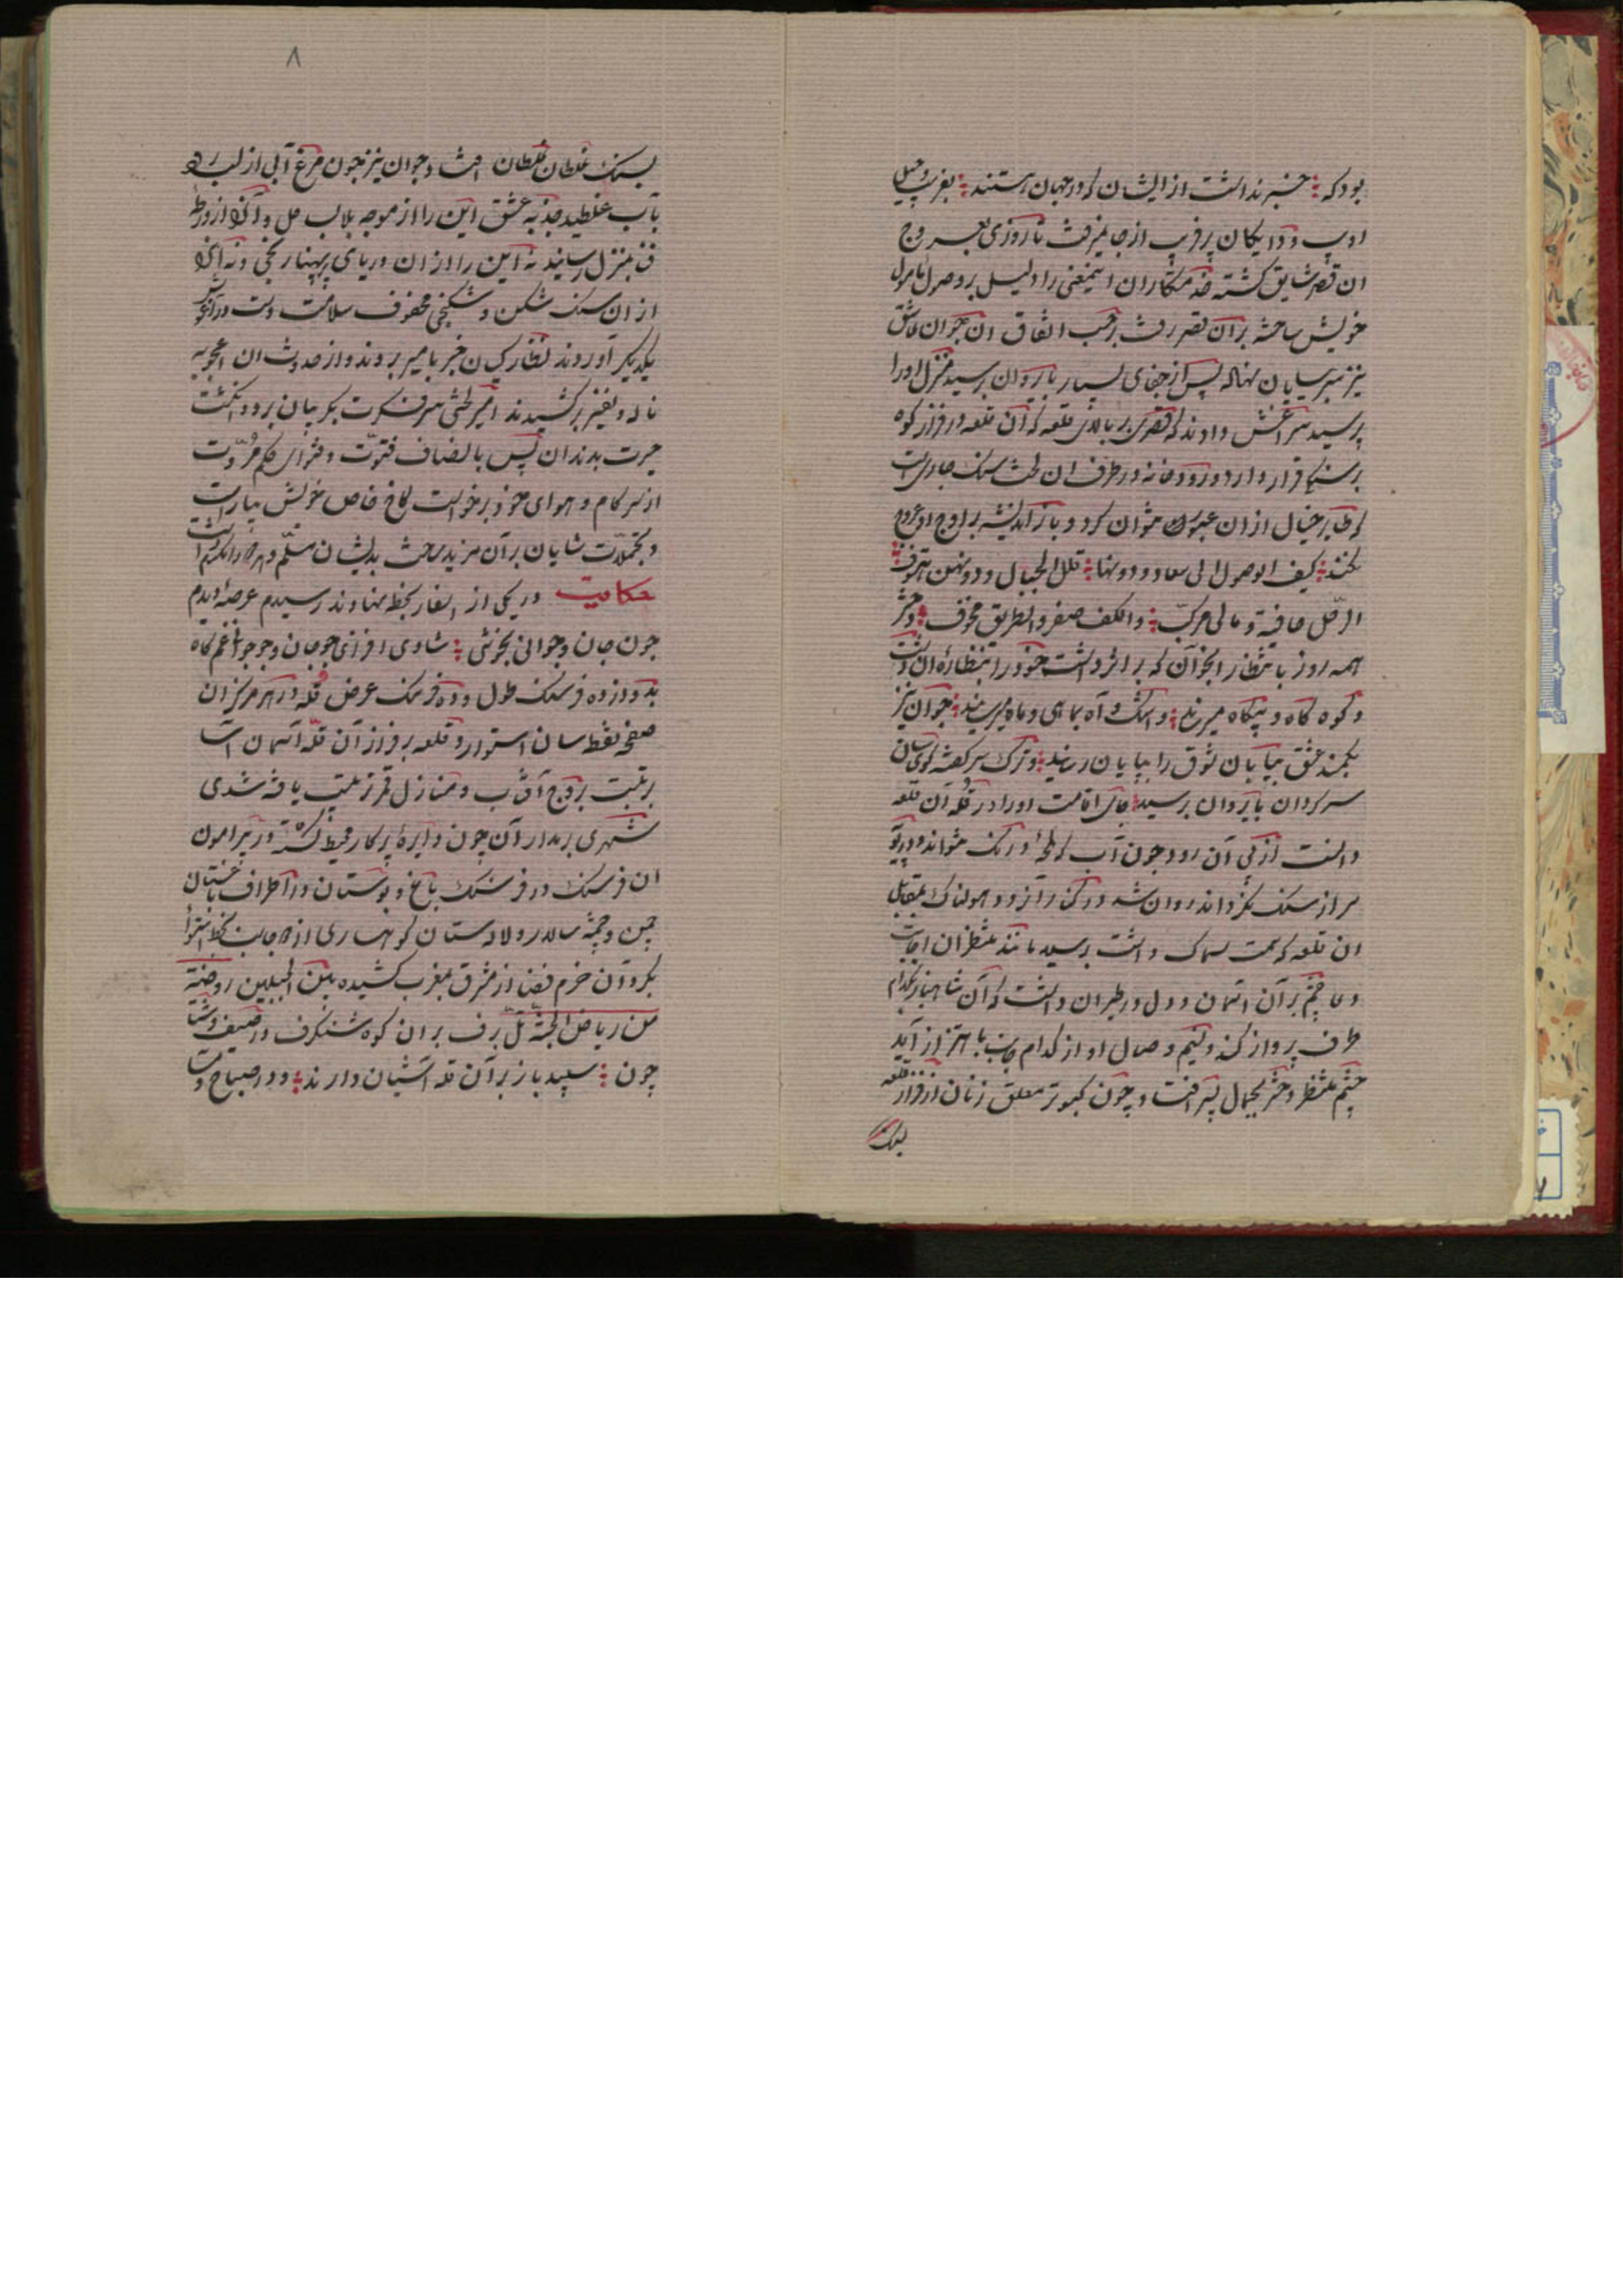 بودکه خبر نداشت از ایشان که در جهان هستند بفریب و حیل
ادیب و دایکان پرفریب از جا نمیرفت تا روزی بعروج
ان قصر شایق کشته خدمتکاران اینمعنی را دلیل بر وصول مامول
خویش ساخته بر آن قصر رفت برحسب اتفاق ان جوان عاشق
نیز پس از جفای بسیار باروان رسید منزل او را
پرسید سراغش دادند که قصری بر بالای قلعه که آن قلعه در فراز کوه
برسنگی قرار دارد و رودخانه در طرف ان سنک جاریست
که طایر خیال از ان عبور نتوان کرد و باز اندیشه بر اوج او عروج
نکند کیف الوصول الی سعاد و دونها قلل الجبال و دونهن حتوف
الرجل حافیة و مالی مرکب والکف صفر والطریق مخوف دختر
همه روز بانتظار انجوان که براثر داشت خود را بنظاره ان دشت
و کوه کاه و بیکاه میرساند و اشک و آه بماهی و ماه میرساند جوان نیز
بکمند عشق بیابان شوق را بپایان رسانید و ترک سر گفته گوی سان
سرکردان باروان رسید جای اقامت او را در قله آن قلعه
دانست از پی آن رود جون آب که لحظهٔ درنک نتواند و
سر از سنک نکرداند روان شد در کنار آنرود هولناک بمقابل
ان قلعه که سمت سماک داشت رسید مانند منتظران اجابت
دعا چشم بر آن اسمان و دل در طیران داشت که آن شاهباز بکدام
طرف پرواز کند و نسیم وصال او از کدام جانب باهتزاز آید
چشم منتظر دختر بجمال پسر افتاد چون کبوتر معلق زنان از فراز قلعه
بسنک
۸
بسنک غلطان غلطان افتاد جوان نیز جون مرغ آبی از لب رود
بآب غلطید جذبه عشق این را از موجه بلا بساحل و آنرا از ورطهٔ
فنا بمنزل رسانید نه این را از ان دریای پهناور رنجی و نه آنرا
از ان سنک شکن و شکنجی محفوف سلامت دست در آغوش
یکدیکر آوردند نظارکیان خبر بامیر بردند و از حدوث ان اعجوبه
ناله و نفیر برکشیدند امیر لختی سر فکرت بکریبان برد و انکشت
حیرت بدندان پس بانصاف فتوت و فتوای حکم مروت
از سر کام و هوای خود برخواست کاخ خاص خویش بیاراست
و تجملات شایان بر آن مزید ساخت بدیشان مسلم و
حکایت در یکی از اسفار بخطهٔ نهاوند رسیدم عرصهٔ دیدم
جون جان و جوانی بخوشی شادی افزای جو جان و جو جوانی غم کاه
بدوازده فرسنک طول و ده فرسنک عرض قلهٔ در مرکز ان
صفحه نقطه سان استوار و قلعه بر فراز آن قله آسمان آسا
برتبت بروج آفتاب و منازل قمر زینت یافته شدی
شهری بر مدار آن چون دایرهٔ پرکار محیط کشته در پیرامون
ان فرسنک در فرسنک باغ و بوستان و در اطراف باغستان
چمن و چمنه سالار و لادستان کوهساری از دو جانب بخط استوا
بکرد آن خرم فضا از مشرق بمغرب کشیده بین الجبلین روضة
من ریاض الجنة تل برف بر ان کوه شنکرف در صیف و شتا
چون سپید باز بر آن قله آشیان دارند و در صباح و مسا